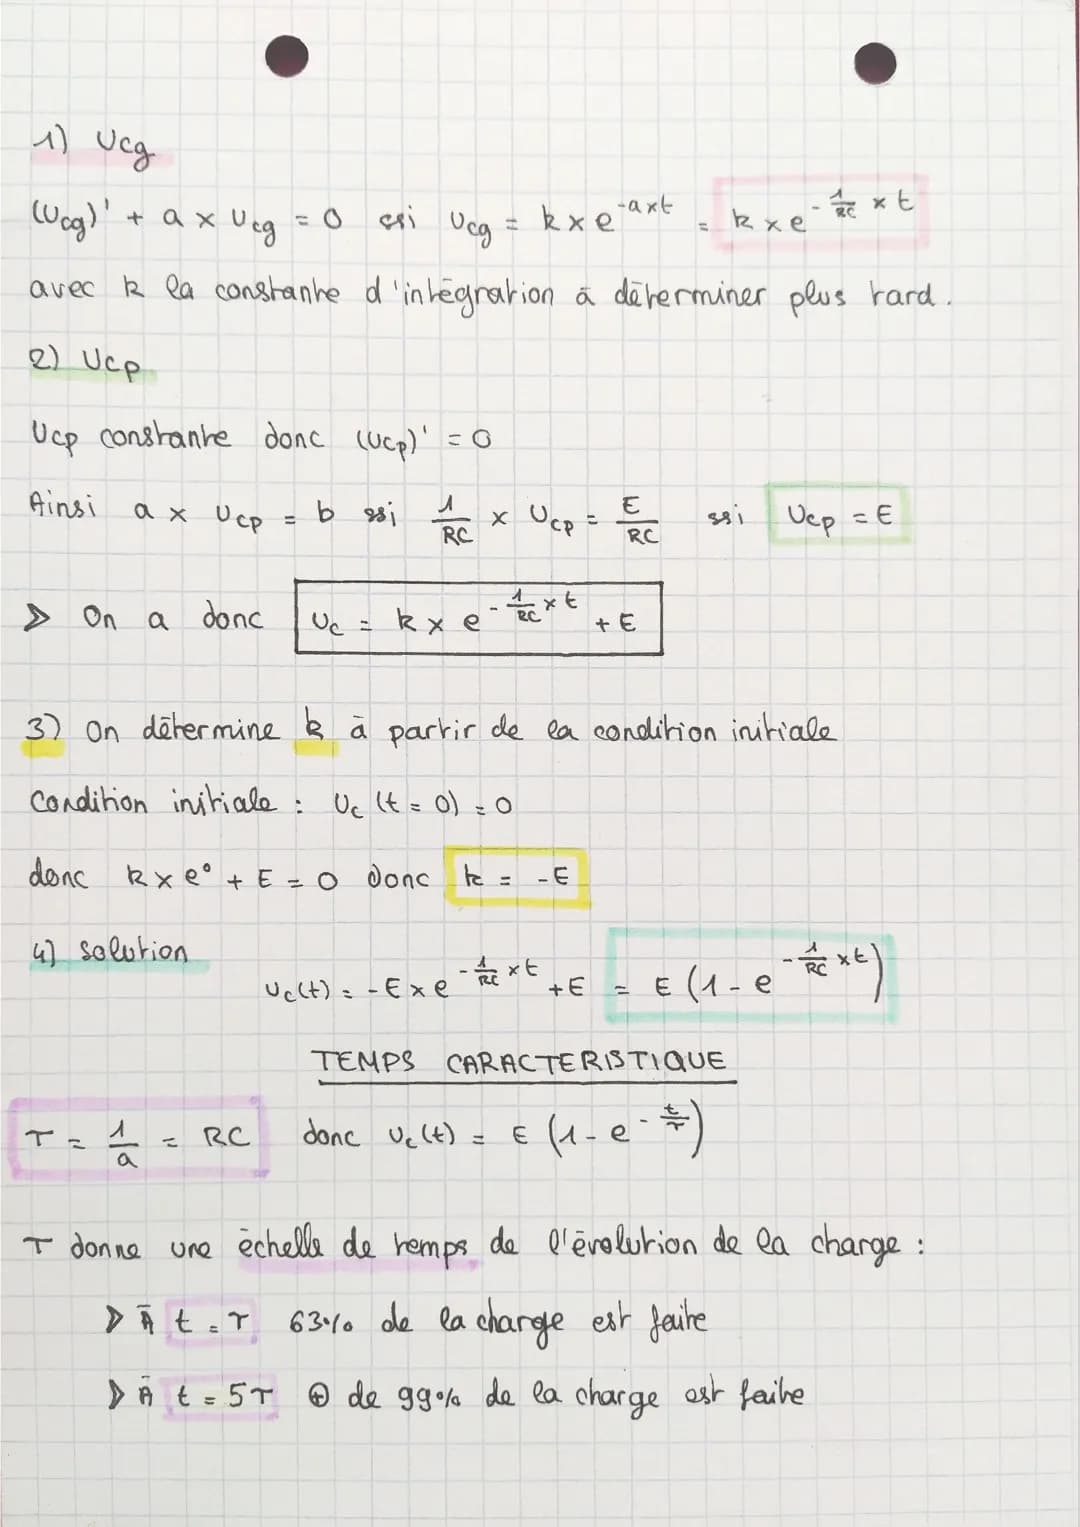 1) Ucg
(Ucg)' + a x Ucg = 0 ssi Ucg = k x e^{-axt} = k x e^{-\frac{1}{RC} x t}
avec k la constante d'intégration à déterminer plus tard.
2) Ucp
Ucp constante donc (Ucp)' = 0
Ainsi a x Ucp = b ssi \frac{1}{RC} x Ucp = \frac{E}{RC} ssi Ucp = E
> On a donc Uc = k x e^{-\frac{1}{RC} x t} + E
3) On détermine k à partir de la condition initiale
Condition initiale : Uc (t = 0) = 0
donc k x e⁰ + E = 0 donc k = -E
4) solution
Uc(t) = -E x e^{-\frac{1}{RC} x t} + E = E (1 - e^{-\frac{1}{RC} x t})
TEMPS CARACTERISTIQUE
τ = \frac{1}{a} = RC donc Uc(t) = E (1 - e^{-\frac{t}{τ}})
τ donne une échelle de temps de l'évolution de la charge :
> À t = τ 63% de la charge est faite
> À t = 5τ ⊕ de 99% de la charge est faite